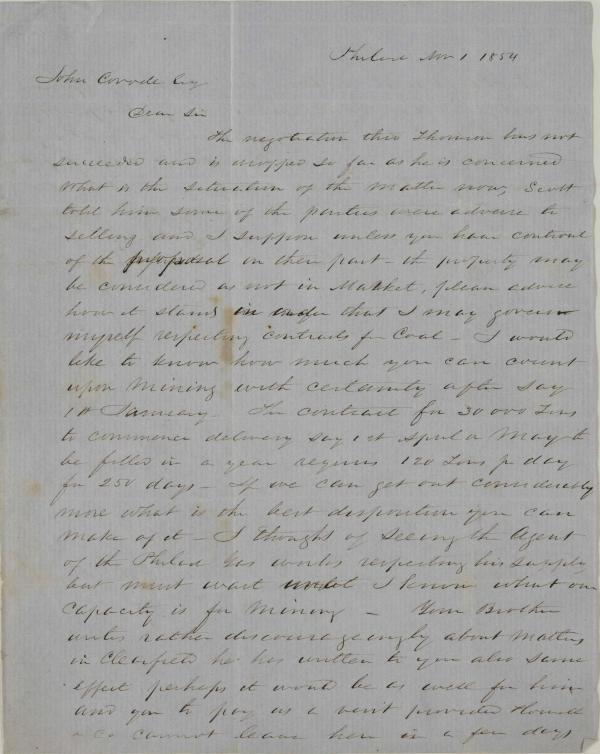 Philad Nov 1 1854
John Covode Esq
Dear Sir
The negotiation thro Thomson has not
succeeded and is dropped so far as he is concerned
What is the situation of the matter now, Scott
told him some of the parties were adverse to
selling and I suppose unless you have controul
of the proposal on their part - the property may
be considered as not in Market, please advise
how it stands in order that I may govern
myself respecting contracts for Coal - I would
like to know how much you can count
upon Mining with certainty after say
1st January. The contract for 30000 Tons
to commence delivery say 1st April or May to
be filled in a year requires 120 Tons p day
for 250 days - If we can get out considerably
more what is the best disposition you can
make of it - I thought of seeing the Agent
of the Philad Gas works respecting his supply
but must wait until I know what our
capacity is for Mining - Your Brother
writes rather discouragingly about Matters
in Clearfield he has written to you also same
effect perhaps it would be as well for him
and you to pay us a visit provided Howell
& Co cannot leave here in a few days